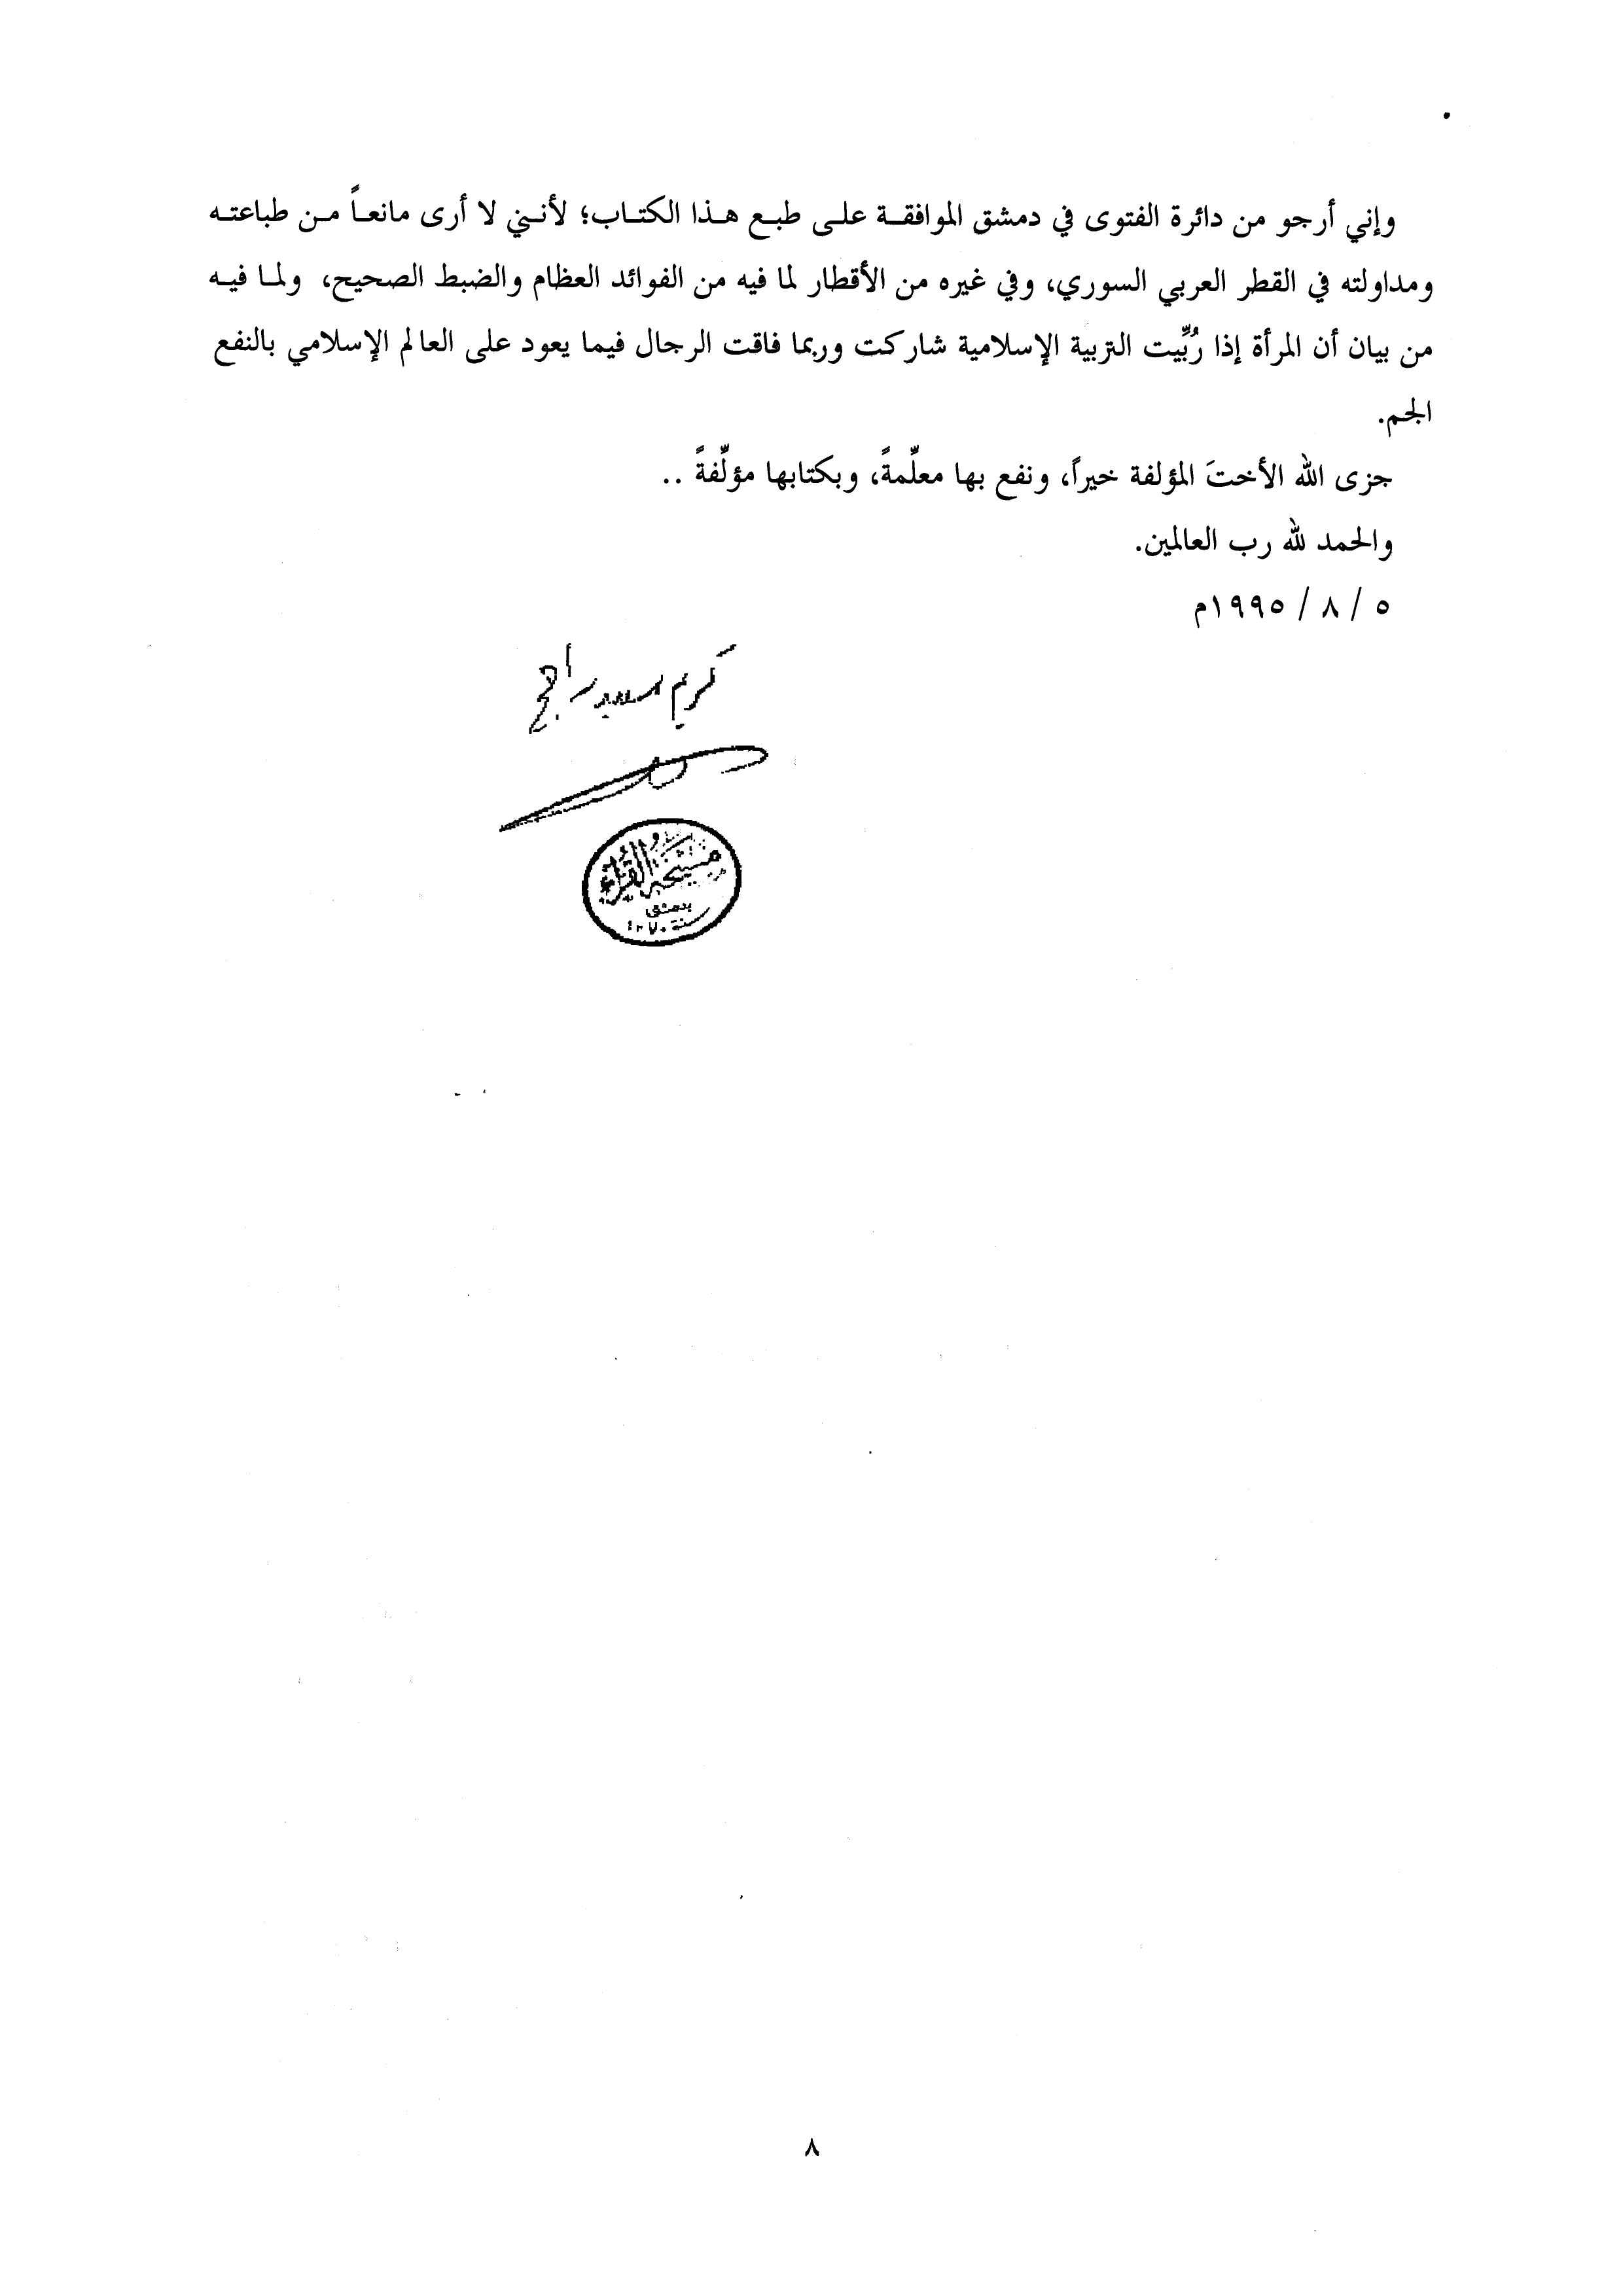 وإني أرجو من دائرة الفتوى في دمشق الموافقة على طبع هذا الكتاب؛ لأنني لا أرى مانعاً من طباعته
ومداولته في القطر العربي السوري، وفي غيره من الأقطار لما فيه من الفوائد العظام والضبط الصحيح، ولما فيه
من بيان أن المرأة إذا رُبِّيت التربية الإسلامية شاركت وربما فاقت الرجال فيما يعود على العالم الإسلامي بالنفع
الجم.
جزى الله الأختَ المؤلفة خيراً، ونفع بها معلِّمةً، وبكتابها مؤلِّفةً ..
والحمد لله رب العالمين.
٥ / ٨ / ١٩٩٥م
كريم سعيد راجح
مشيخة القراء
بدمشق
سنة
٨